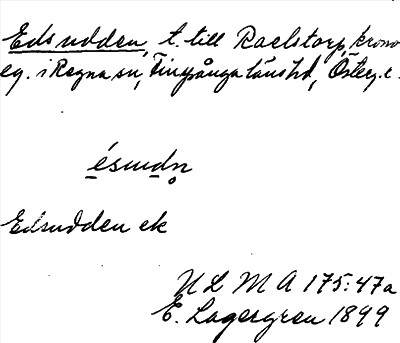 Edsudden, t. till Raelstorp, krono
eg. i Regna sn, Finspånga länshd, Österg. l.
ésuɷdn̥
Edsudden ek
ULMA 175:47a
E. Lagergren 1899